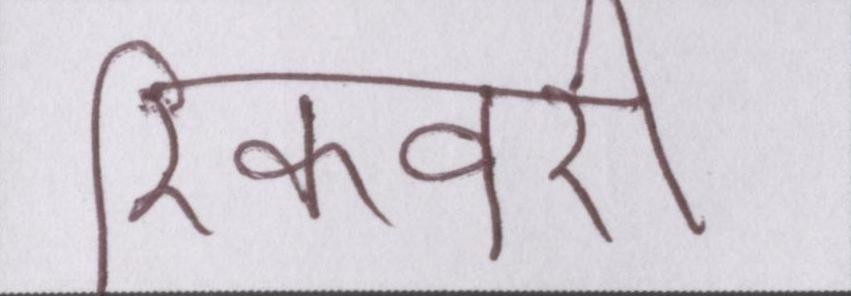 रिकवरी